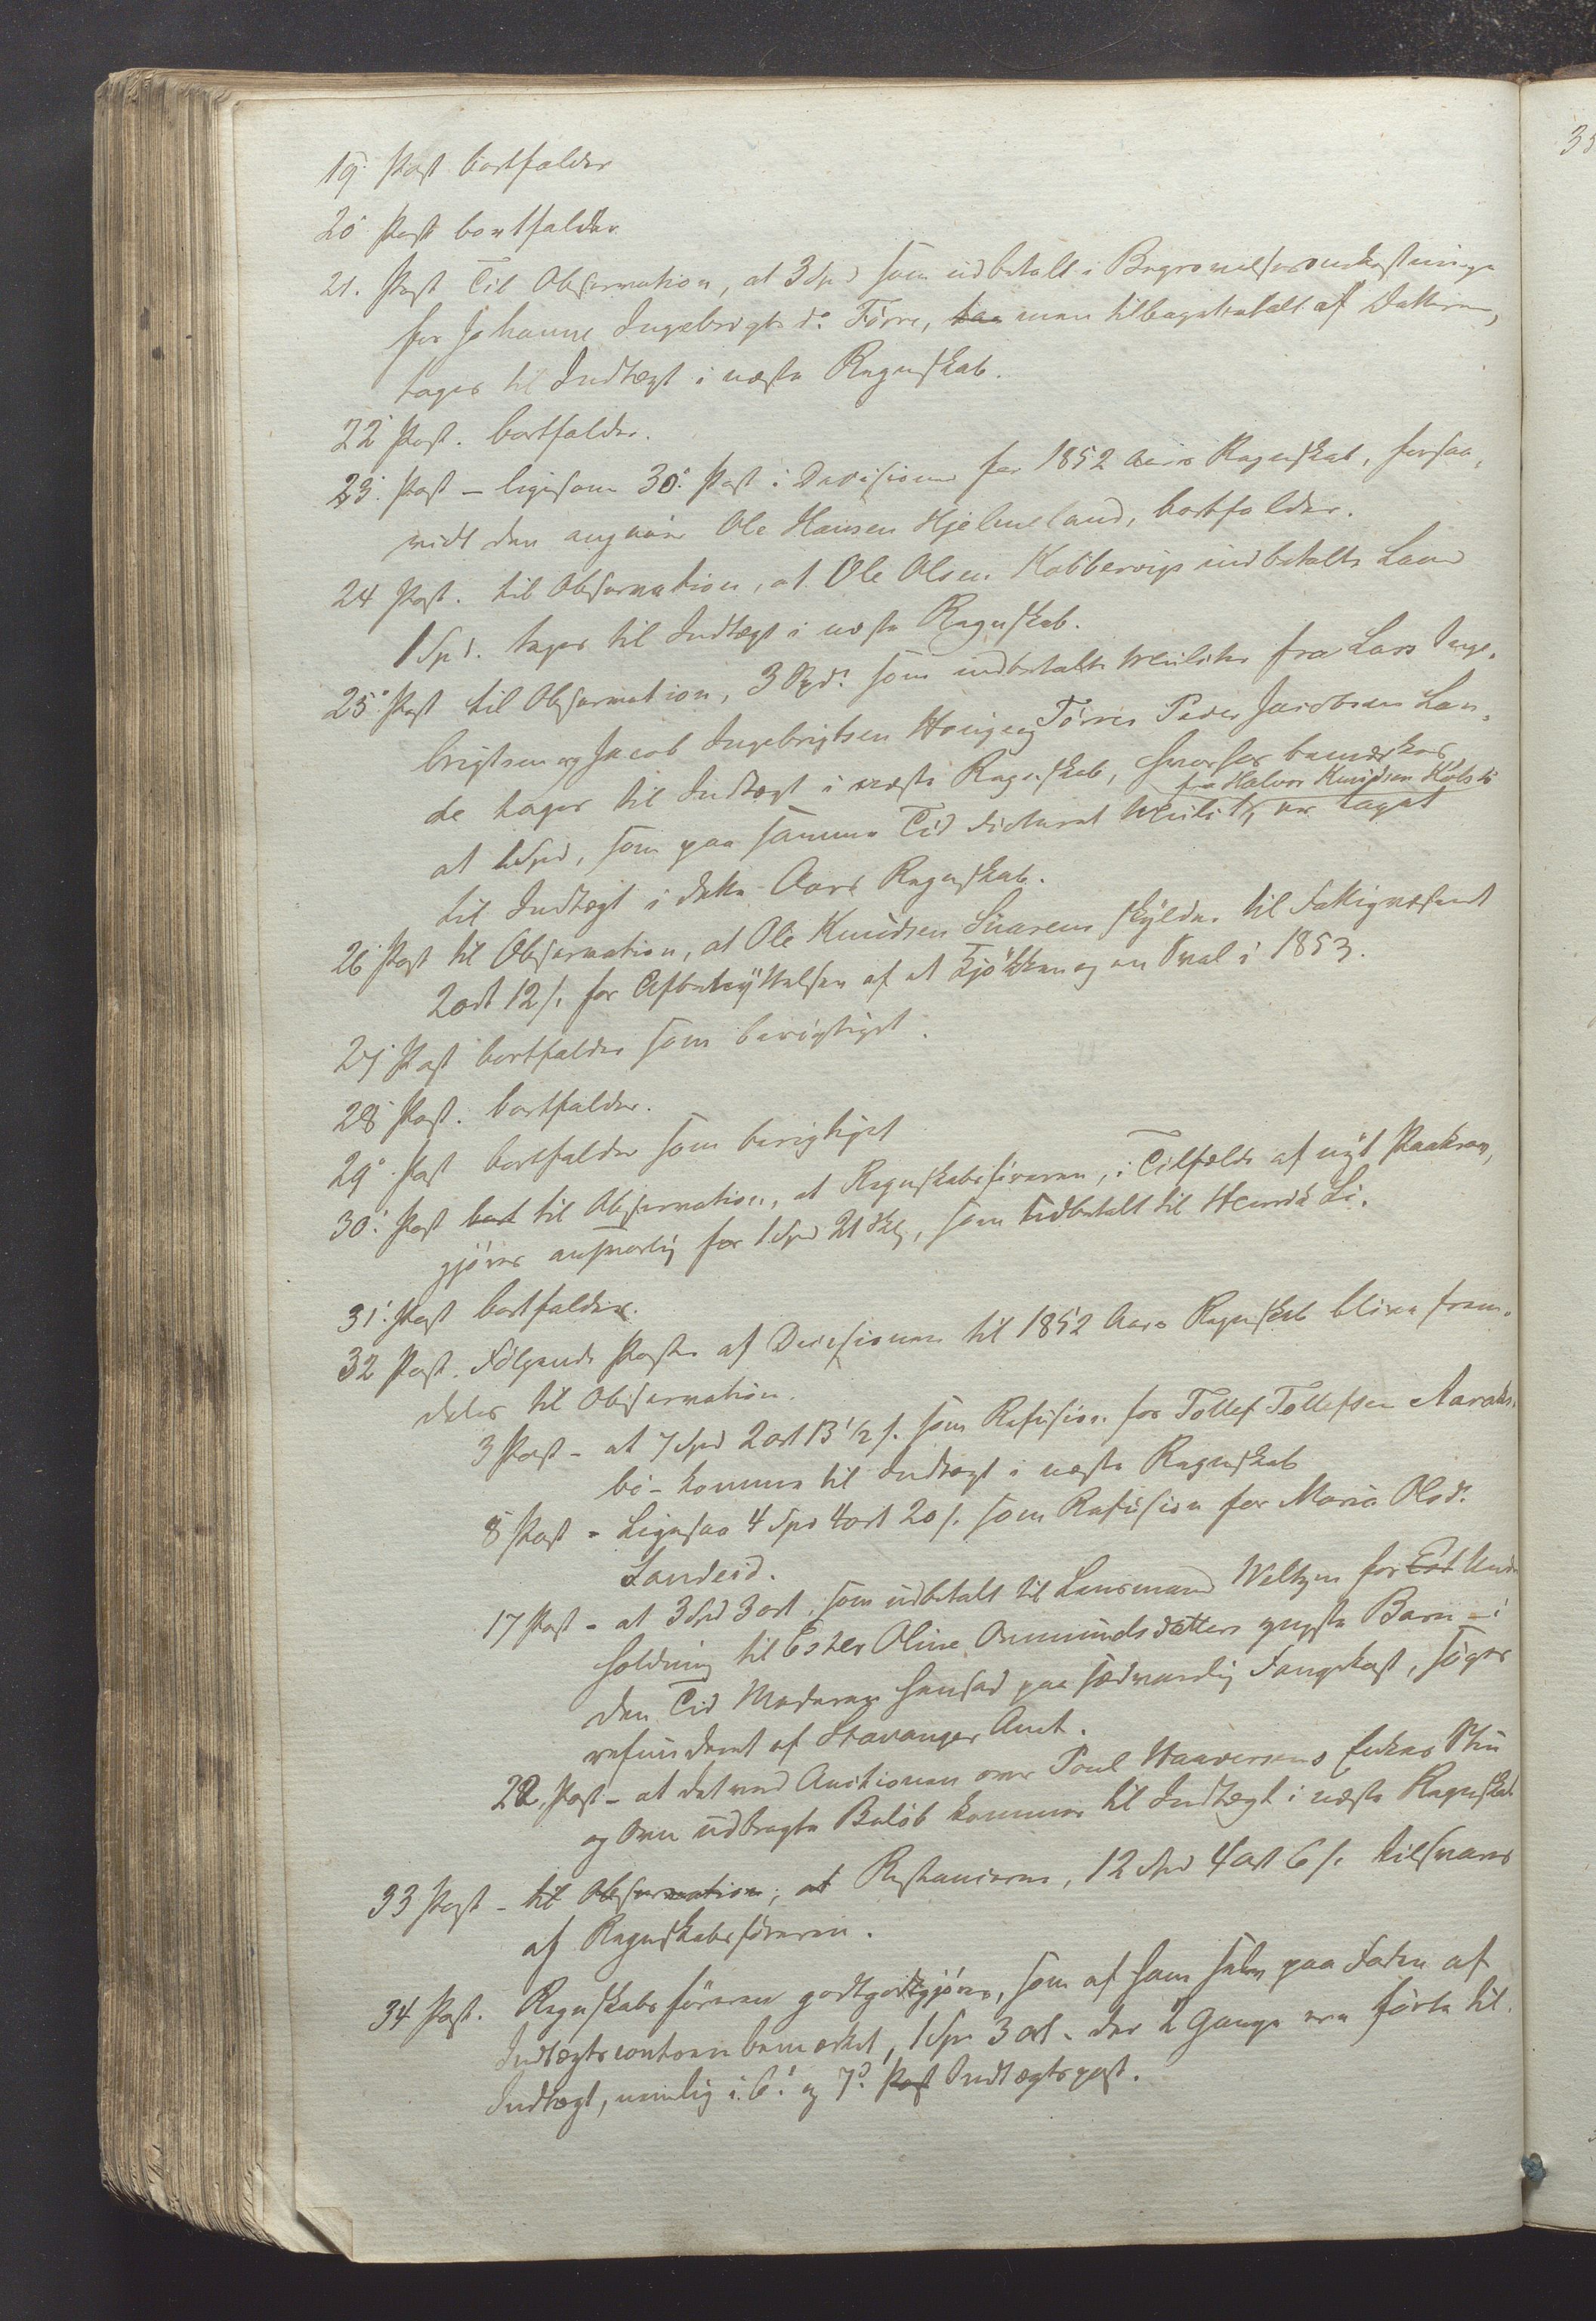 19. Post bortfalder
20 Post bortfalder
21. Post Til Observation, at 3 Spd som udbetalt i Begravelsesomkostninger
for Johanne Ingebrigtsdr. Førre, men tilbagebetalt af Datteren,
tages til Indtægt i næste Regnskab.
22 Post. bortfalder.
23. Post – ligesom 30. Post i Decisionen for 1852 Aars Regnskab, forsaa-
vidt den angaar Ole Hansen Hjelmeland, bortfalder.
24 Post. til Observation, at Ole Olsen Kobbervigs indbetalte Laan
1 Spd. tages til Indtægt i næste Regnskab.
25. Post til Observation, 3 Spd. som indbetalte Mulkter fra Lars Inge-
brigtsen og Jacob Ingebrigtsen og Tørres Peder Jacobsen Lan-
de tages til Indtægt i næste Regnskab, hvorfor bemærkes
at 1 Spd, som paa samme Tid dicteret Mulkt, fra Halvor Knudsen er taget
til Indtægt i dette Aars Regnskab.
26 Post til Observation, at Ole Knudsen skylder til Fattigvæsenet
2 ort 12 s. for Afbenyttelsen af et Kjøkken og en Sval i 1853.
27 Post bortfalder som berigtiget.
28 Post. bortfalder.
29. Post bortfalder som berigtiget
30. Post bort til Observation, at Regnskabsføreren, i Tilfælde af nyt Paakrav,
gjøres ansvarlig for 1 Spd 21 Skl, som udbetalt til Henrik Li.
31. Post bortfalder.
32 Post. Følgende Poster af Decisionen til 1852 Aars Regnskab blive frem-
deles til Observation.
3 Post – at 7 Spd 2 ort 13 1/2 s. som Refusion for Tollef Tollefsen Aarak-
bø – komme til Indtægt i næste Regnskab
8 Post – Ligesaa 4 Spd 4 ort 20 s. som Refusion for Maria Olsdr.
Sandeid.
17 Post – at 3 Spd 3 ort, som udbetalt til Lensmand Weltzin for Est Under-
holdning til Ester Oline Ommundsdatters yngste Barn – i
den Tid Moderen hensad paa sædvanlig Fangekost, søges
refunderet af Stavanger Amt.
22. Post – at det ved Auctionen over Poul Haaversens Enkes
og udbragte Beløb kommer til Indtægt i næste Regnskab
33 Post – til Observation, at Restancerne, 12 Spd 4 ort 6 s. tilsvares
af Regnskabsføreren.
34 Post. Regnskabsføreren godtgjøres, som af ham selv paa Foden af
Indtægtscontoen bemærket, 1 Spd 3 ort – der 2 Gange ere førte til
Indtægt, nemlig i 6. og 7d. Post Indtægtspost.